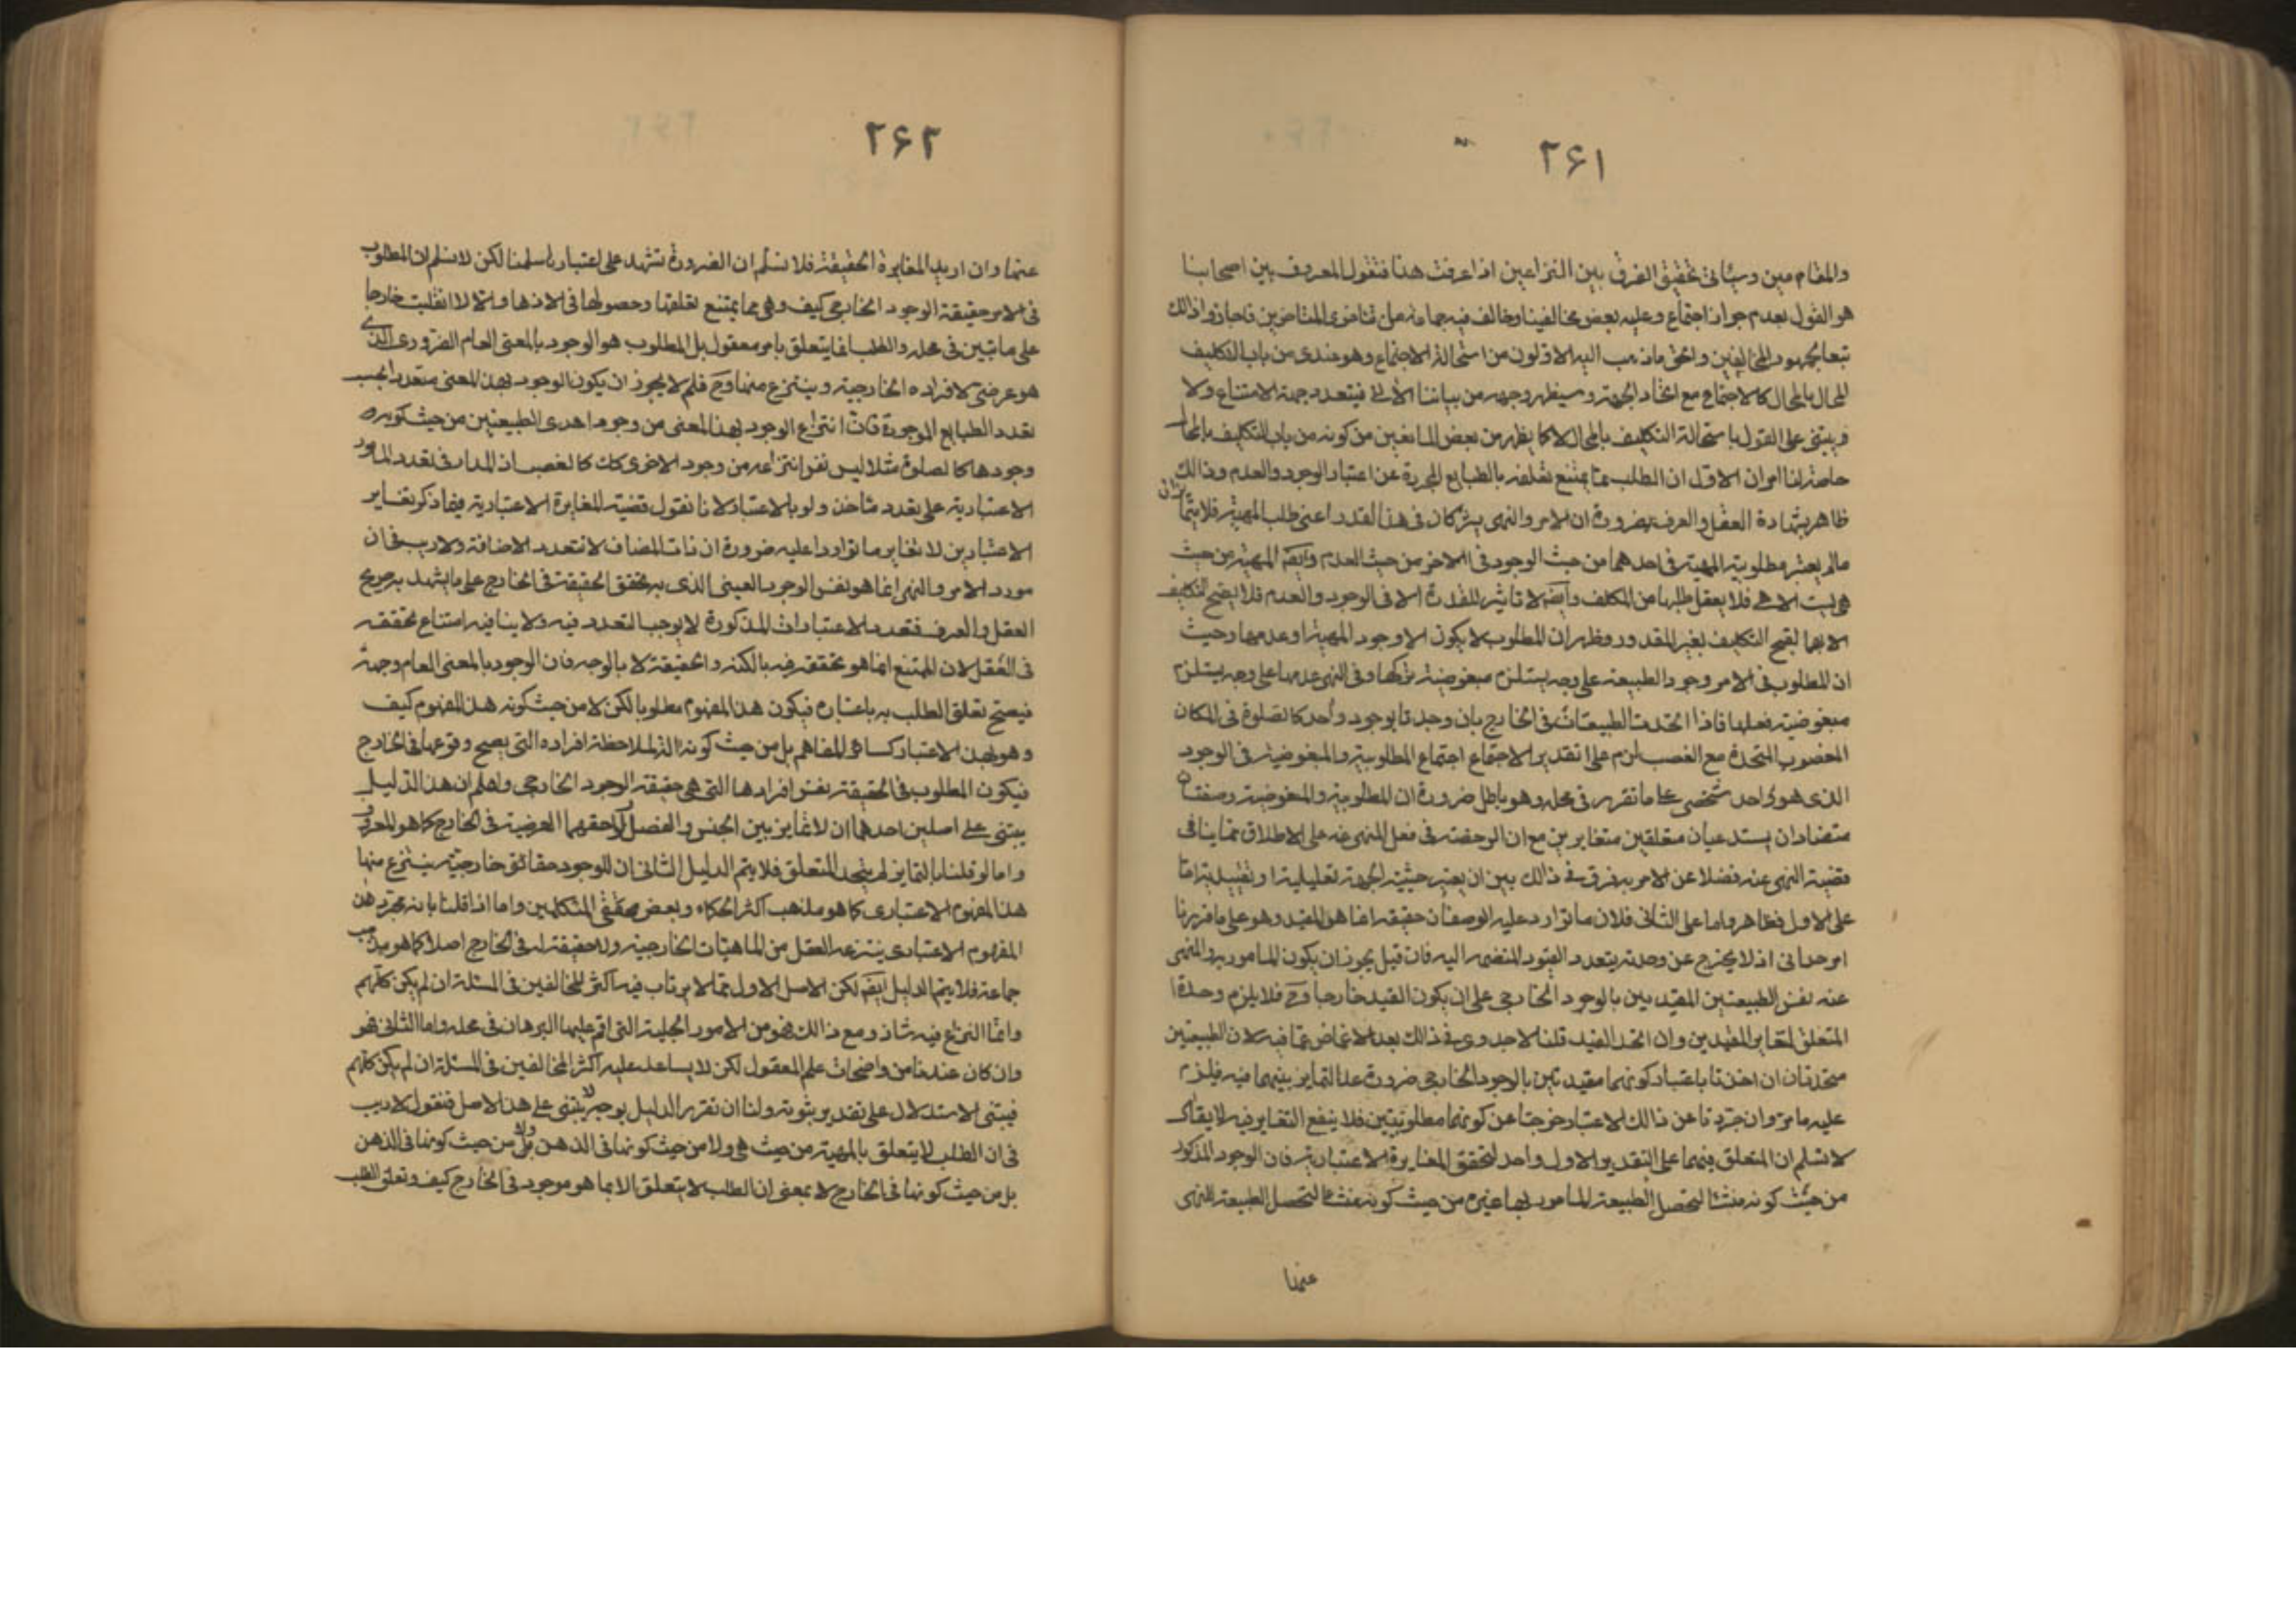 ٢۶١
والمقام مبين وسيأتي تحقيق الفرق بين النزاعين اذا عرفت هذا فنقول المعروف بين اصحابنا
هو القول بعدم جواز اجتماع وعليه بعض مخالفينا وخالف فيه جماعة من متاخري المتاخرين فاجازوا ذلك
تبعا لجمهور المخالفين والحق ما ذهب اليه الاولون من استحالة الاجتماع وهو عندي من باب التكليف
المحال بالمحال كالاجتماع مع اتحاد الجهة وسيظهر وجهه من بياننا الآتي فيتعدد جهة الامتناع ولا
يبتني على القول باستحالة التكليف بالمحال لا كما يظهر من بعض المانعين من كونه من باب التكليف بالمحال
لنا امران الاول ان الطلب مما يمتنع تعلقه بالطبايع المجردة عن اعتبار الوجود والعدم وذالك
ظاهر بشهادة العقل والعرف ضرورة ان الامر والنهي يشتركان في هذا القدر اعني طلب المهية فلا يتمايزان
مالم يعتبر مطلوبية المهية في احدهما من حيث الوجود في الاخر من حيث العدم وايضا المهية من حيث
هي ليست الا هي فلا يعقل طلبها من المكلف وايضا لا تاثير للقدرة الا في الوجود والعدم فلا يصح التكليف
الا بهما لقبح التكليف بغير المقدور وظهر ان المطلوب لا يكون الا وجود المهية او عدمها وحيث
ان المطلوب في الامر وجود الطبيعة على وجه يستلزم مبغوضية تركها وفي النهي عدمها على وجه يستلزم
مبغوضية فعلها فاذا اتحدت الطبيعتان في الخارج بان وجدتا بوجود واحد كالصلوة في المكان
المغصوب المتحدة مع الغصب لزم على تقدير الاجتماع اجتماع المطلوبية والمبغوضية في الوجود
الذي هو واحد شخصي على ما تقرر في محله وهو باطل ضرورة ان المطلوبية والمبغوضية وصفان
متضادان يستدعيان متعلقين متغايرين مع ان الرخصة في فعل المنهي عنه على الاطلاق مما ينافي
قضية النهي عنه فضلا عن الامر به فرق في ذالك بين ان يعتبر حيثية الجهة تعليلية او تقييدية اما
على الاول فظاهر واما على الثاني فلان ما توارد عليه الوصفان حقيقة انما هو المقيد وهو على ما قررنا
امر وحداني اذ لا يخرج عن وحدته بتعدد القيود المنضمة اليه فان قيل يجوز ان يكون المامور به والمنهي
عنه نفس الطبيعتين المقيدين بالوجود الخارجي على ان يكون القيد خارجا وح فلا يلزم وحدة
المتعلق لتغاير المقيدين وان اتحد القيد قلنا لا جدوى في ذالك بعد الاغماض عما فيه لان الطبيعتين
متحدتان ان اخذتا باعتبار كونهما مقيدتين بالوجود الخارجي ضرورة عدم التمايز بينهما فيه فيلزم
عليه ما مر وان جردتا عن ذالك الاعتبار خرجتا عن كونهما مطلوبتين فلا ينفع التغاير فيه لا يقال
لا نسلم ان المتعلق فيهما على التقدير الاول واحد لتحقق المغايرة الاعتبارية فان الوجود المذكور
من حيث كونه منشا لتحصل الطبيعة المامور بها غيره من حيث كونه منشا لتحصل الطبيعة المنهي
عنها
٢۶٢
عنها وان اريد المغايرة الحقيقة فلا نسلم ان الضرورة تشهد على اعتبارها سلمنا لكن لا نسلم ان المطلوب
في الامر حقيقة الوجود الخارجي كيف وهي مما يمتنع تعلقها وحصولها في الاذهان والا لانقلبت خارجا
على ما تبين في محله والطلب انما يتعلق بامر معقول بل المطلوب هو الوجود بالمعنى العام الضروري الذي
هو عرضي لافراده الخارجية وينتزع منها وح فلم لا يجوز ان يكون الوجود بهذا المعنى متعددا بحسب
تعدد الطبايع الموجودة فان انتزاع الوجود بهذا المعنى من وجود احدى الطبيعتين من حيث كونه
وجودها كالصلوة مثلا ليس نفس انتزاعه من وجود الاخرى كك كالغصب اذ المدار في تعدد الامور
الاعتبارية على تعدد ماخذه ولو بالاعتبار لانا نقول قضية المغايرة الاعتبارية فيما ذكر تغاير
الاعتبارين لا تغاير ما تواردا عليه ضرورة ان ذات المضاف لا تتعدد الاضافة ولا ريب في ان
مورد الامر والنهي انما هو نفس الوجود العيني الذي به تحقق الحقيقة في الخارج على ما يشهد به صريح
العقل والعرف فتعدد الاعتبارات المذكورة لا يوجب التعدد فيه ولا ينافيه امتناع تحققه
في العقل لان الممتنع انما هو تحققه فيه بالكنه والحقيقة لا بالوجه فان الوجود بالمعنى العام وجهه
فيصح تعلق الطلب به باعتباره فيكون هذا المفهوم مطلوبا لكن لا من حيث كونه هذا المفهوم كيف
وهو بهذا الاعتبار كسائر المفاهيم بل من حيث كونه آلة لملاحظة افراده التي يصح وقوعها في الخارج
فيكون المطلوب في الحقيقة نفس افرادها التي هي حقيقة الوجود الخارجي واعلم ان هذا الدليل
يبتني على اصلين احدهما ان لا تمايز بين الجنس والفصل ولاحقهما العرضية في الخارج كما هو المعروف
واما لو قلنا بالتمايز لم يتحد المتعلق فلا يتم الدليل الثاني ان للوجود حقائق خارجية ينتزع منها
هذا المفهوم الاعتباري كما هو مذهب اكثر الحكماء وبعض محققي المتكلمين واما اذا قلنا بانه مجرد هذا
المفهوم الاعتباري ينتزعه العقل من الماهيات الخارجية ولا حقيقة له في الخارج اصلا كما هو مذهب
جماعة فلا يتم الدليل ايضا لكن الاصل الاول مما لا يرتاب فيه اكثر المخالفين في المسئلة ان لم يكن كلهم
وانما النزاع فيه شاذ ومع ذالك فهو من الامور الجلية التي اقيم عليها البرهان في محله واما الثاني فهو
وان كان عندنا من واضحات علم المعقول لكن لا يساعد عليه اكثر المخالفين في المسئلة ان لم يكن كلهم
فيبتني الاستدلال على تقدير ثبوته ولنا ان نقرر الدليل بوجه لا يبتني على هذا الاصل فنقول لا ريب
في ان الطلب لا يتعلق بالمهية من حيث هي ولا من حيث كونها في الذهن بل ولا من حيث كونها في الذهن
بل من حيث كونها في الخارج لا بمعنى ان الطلب لا يتعلق الا بما هو موجود في الخارج كيف وتعلق الطلب